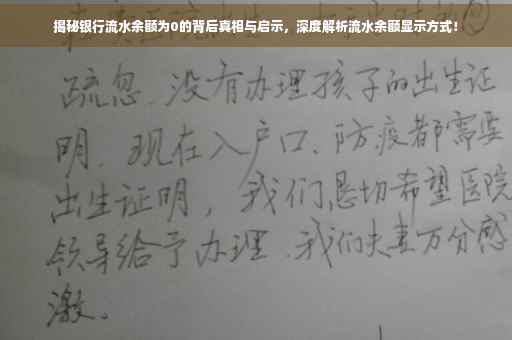 揭秘银行流水余额为0的背后真相与启示，深度解析流水余额显示方式！
疏忽、没有办理孩子的出生证
明、现在入户口、防疫都需要
出生证明，我们恳切希望医院
领导给予办理、我们夫妻万分感
激。